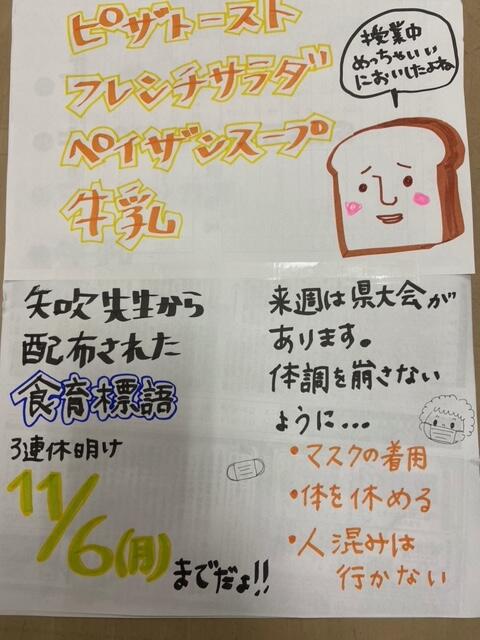 ピザトースト
フレンチサラダ
ペイザンスープ
牛乳
授業中
めっちゃいい
においしたよね
矢吹先生から
配布された
食育標語
3連休明け
11/6(月)
までだょ!!
来週は県大会が
あります。
体調を崩さない
ように...
・マスクの着用
・体を休める
・人混みは
行かない